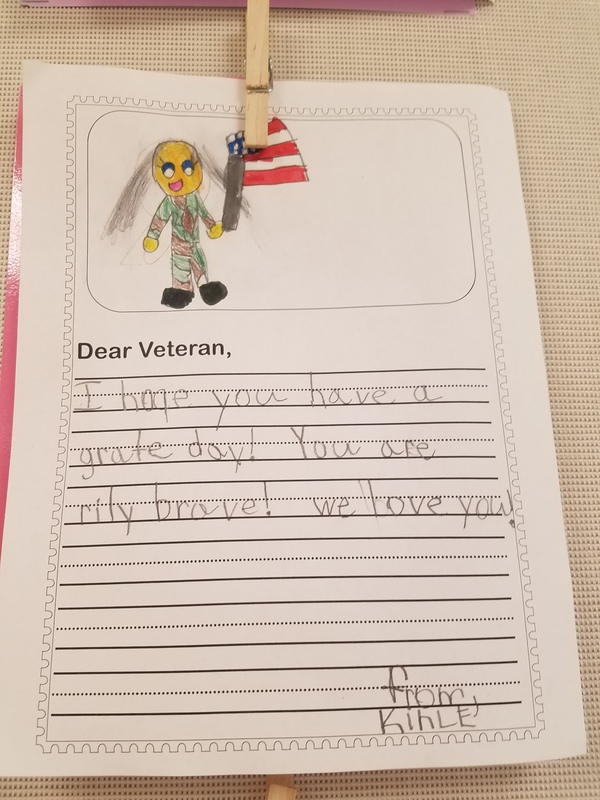 Dear Veteran,
I hope you have a
grate day! You are
rily brave! we love you!
from,
KinLE